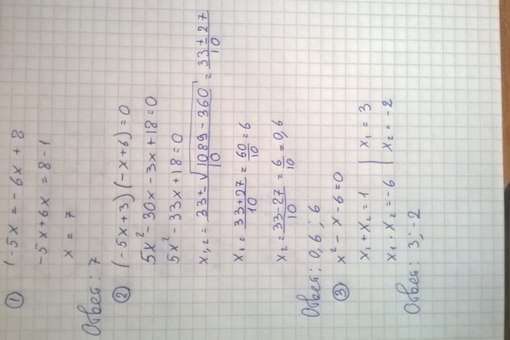 ① 1 - 5x = - 6x + 8
-5x + 6x = 8 - 1
x = 7
Ответ: 7
② (-5x + 3)(-x + 6) = 0
5x² - 30x - 3x + 18 = 0
5x² - 33x + 18 = 0
x₁,₂ = 33 ± √1089 - 360 / 10 = 33 ± 27 / 10
x₁ = 33 + 27 / 10 = 60 / 10 = 6
x₂ = 33 - 27 / 10 = 6 / 10 = 0,6
Ответ: 0,6; 6
③ x² - x - 6 = 0
x₁ + x₂ = 1 | x₁ = 3
x₁ · x₂ = -6 | x₂ = -2
Ответ: 3; -2